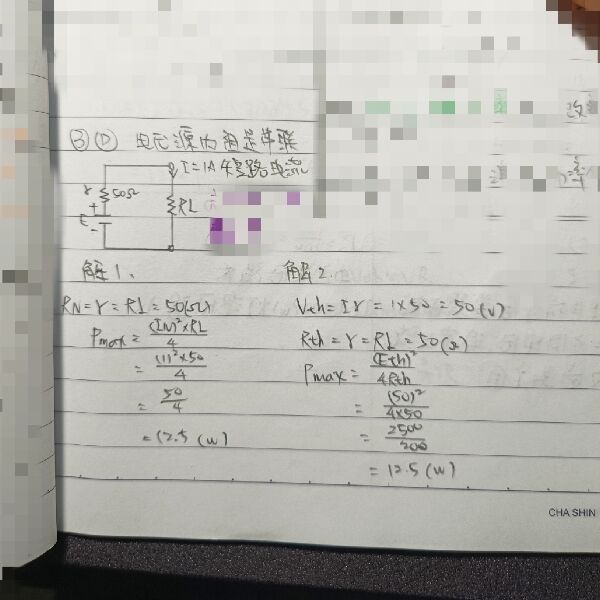 ③(D) 电压源内阻是串聯
I=1A 短路电流
r 50Ω
+
E
-
RL
解1、
RN=r=RL=50(Ω)
Pmax=(IN)²×RL/4
=(1)²×50/4
=50/4
=12.5(W)
解2.
Vth=Ir=1×50=50(V)
Rth=r=RL=50(Ω)
Pmax=(Eth)²/4Rth
=(50)²/4×50
=2500/200
=12.5(W)
CHA SHIN